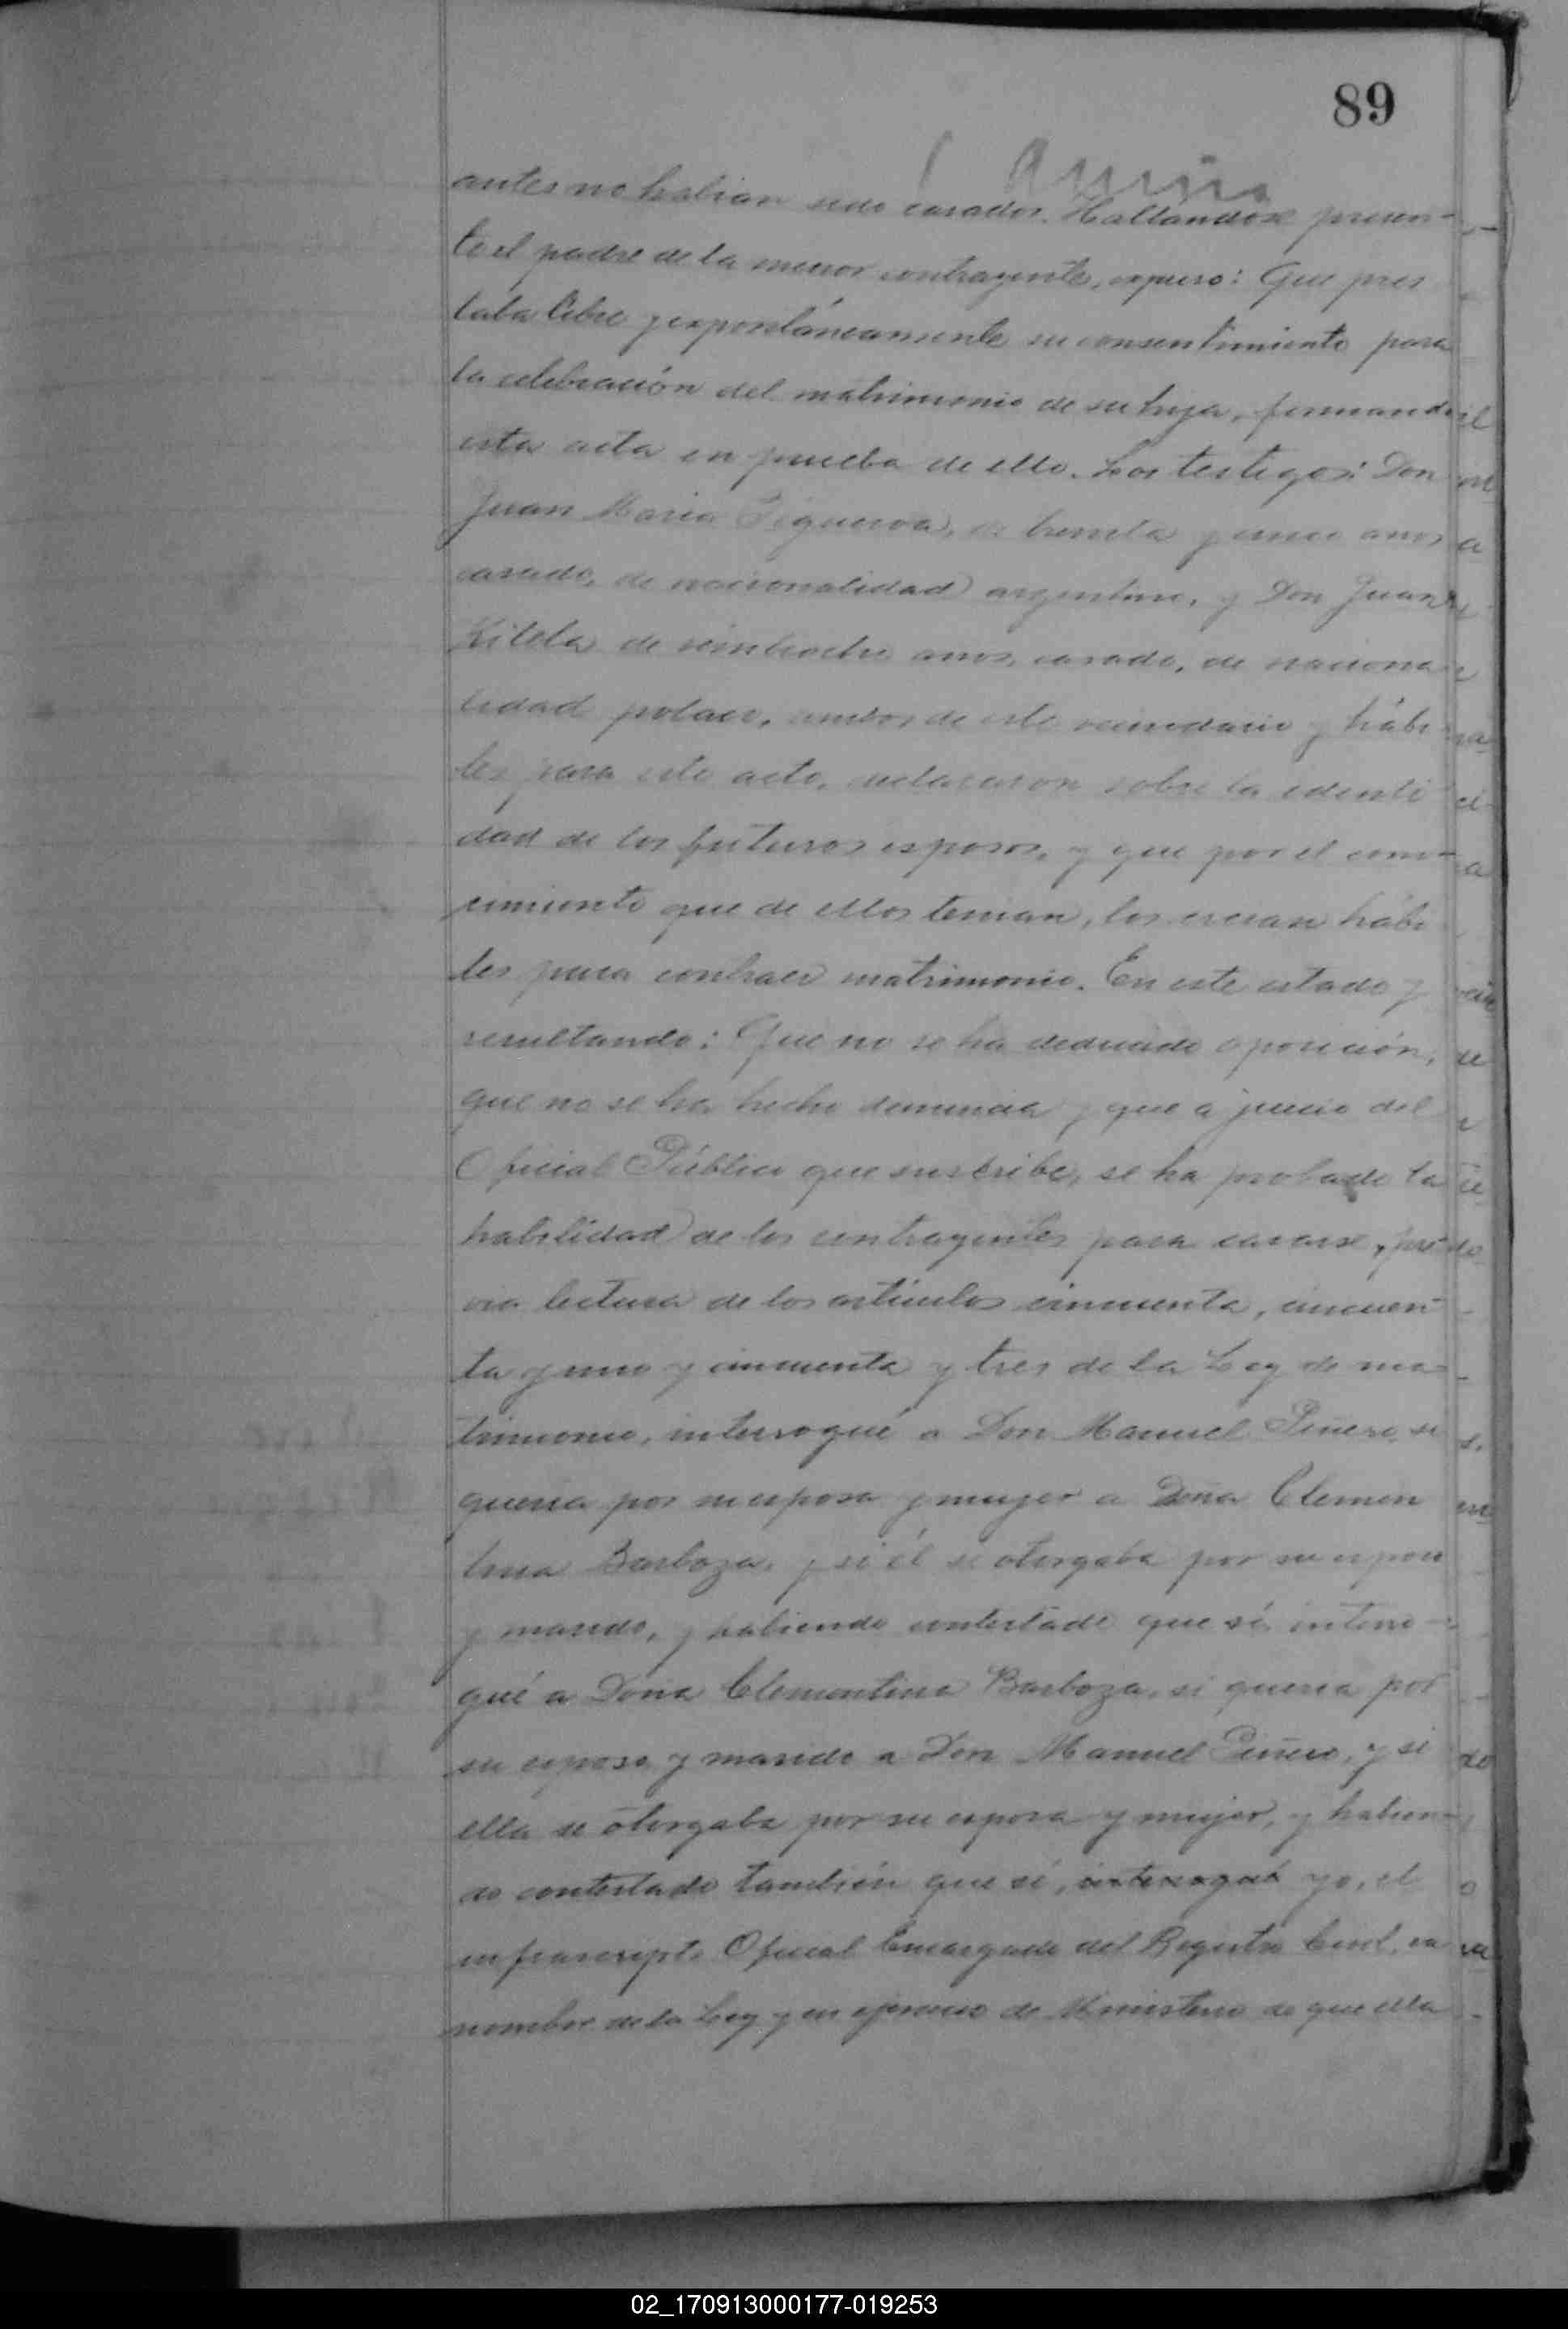 89
antes no habian sido casados. Hallandose presen-
te el padre de la menor contrayente, expuso: Que pres
taba libre y expontáneamente su consentimiento para
la celebración del matrimonio de su hija, firmando
esta acta en prueba de ello. Los testigos: Don
Juan Maria Figueroa, de treinta y cinco anos
casado, de nacionalidad argentino, y Don Juan
Kitela de veintiocho anos, casado, de naciona
lidad polaco, ambos de este vecindario y hábi
les para este acto, declararon sobre la identi
dad de los futuros esposos, y que por el cono-
cimiento que de ellos tenian, los creian hábi
les para contraer matrimonio. En este estado y
resultando: Que no se ha deducido oposición,
que no se ha hecho denuncia y que a juicio del
Oficial Público que suscribe, se ha probado la
habilidad de los contrayentes para casarse, pre
via lectura de los artículos cincuenta, cincuen
ta y uno y cincuenta y tres de la Ley de ma
trimonio, interrogué a Don Manuel Piñero, si
queria por su esposa y mujer a Doña Clemen
tina Barboza, y si él se otorgaba por su esposo
y marido, y habiendo contestado que sí, interro-
gué a Doña Clementina Barboza, si queria por
su esposo y marido a Don Manuel Piñero, y si
ella se otorgaba por su esposa y mujer, y habien-
do contestado también que sí, interrogué yo, el
infrascripto Oficial Encargado del Registro Civil, en
nombre de la Ley y en ejercicio de Ministerio de que ella
02_170913000177-019253